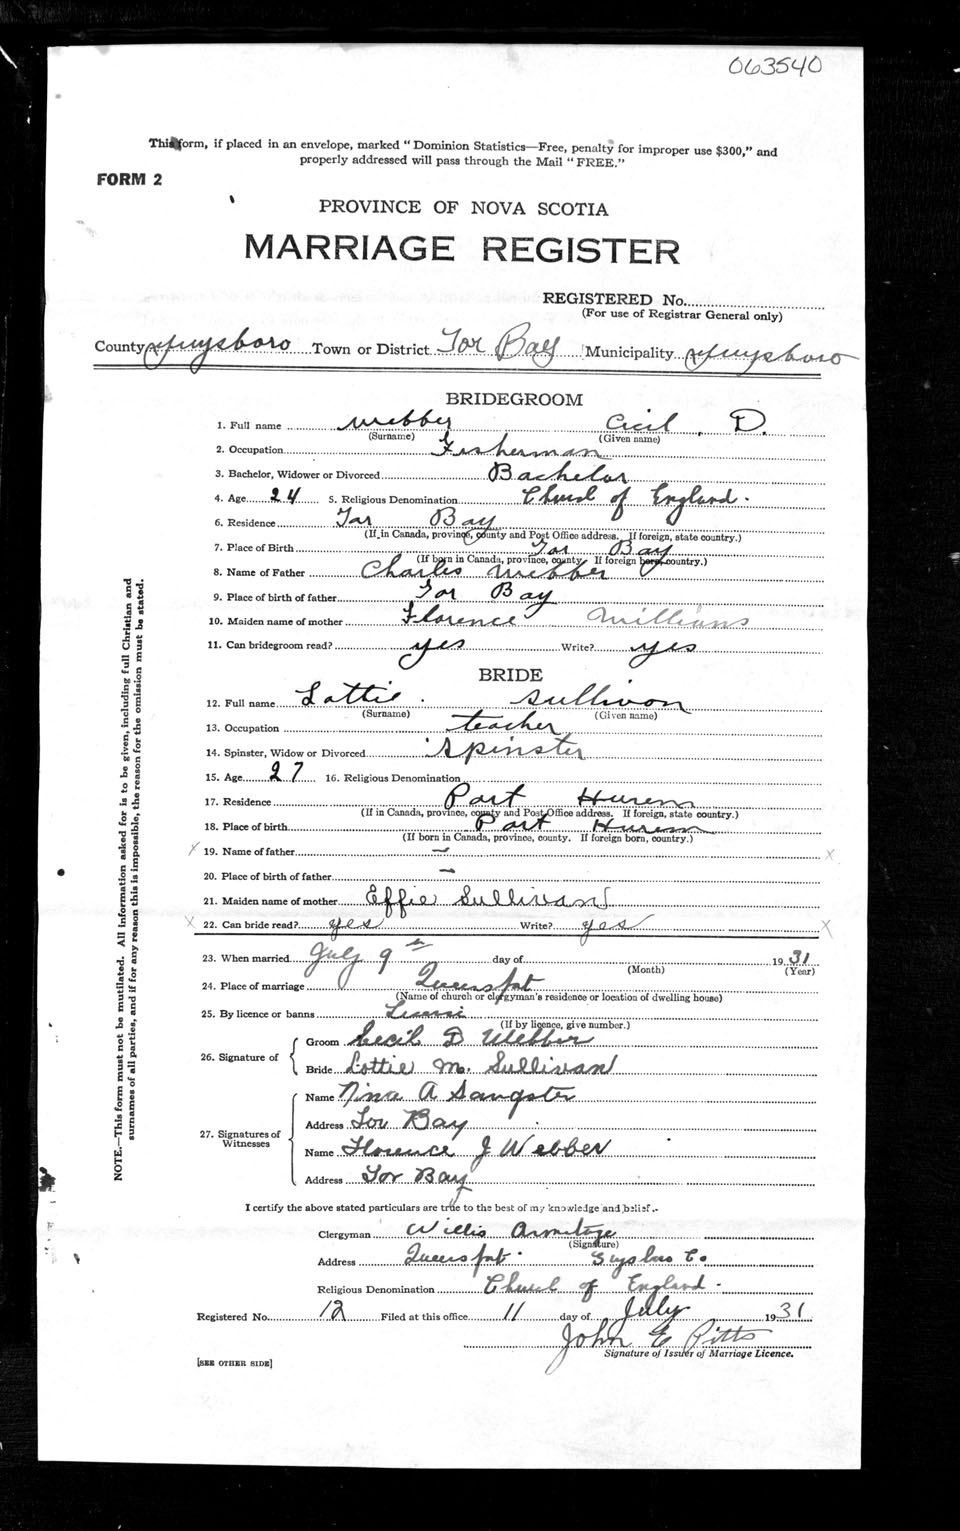 063540
This form, if placed in an envelope, marked "Dominion Statistics—Free, penalty for improper use $300," and
properly addressed will pass through the Mail "FREE."
FORM 2
PROVINCE OF NOVA SCOTIA
MARRIAGE REGISTER
REGISTERED No.
(For use of Registrar General only)
County Guysboro Town or District Tor Bay Municipality Guysboro
BRIDEGROOM
1. Full name Webber Cecil D.
(Surname) (Given name)
2. Occupation Fisherman
3. Bachelor, Widower or Divorced Bachelor
4. Age 24 5. Religious Denomination Church of England.
6. Residence Tor Bay
(If in Canada, province, county and Post Office address. If foreign, state country.)
7. Place of Birth Tor Bay
(If born in Canada, province, county. If foreign born, country.)
8. Name of Father Charles Webber
9. Place of birth of father Tor Bay
10. Maiden name of mother Florence Williams
11. Can bridegroom read? yes Write? yes
BRIDE
12. Full name Lottie . Sullivon
(Surname) (Given name)
13. Occupation teacher
14. Spinster, Widow or Divorced Spinster
15. Age 27 16. Religious Denomination
17. Residence Port
(If in Canada, province, county and Post Office address. If foreign, state country.)
18. Place of birth Port
(If born in Canada, province, county. If foreign born, country.)
X 19. Name of father — X
20. Place of birth of father —
21. Maiden name of mother Effie Sullivan
X 22. Can bride read? yes Write? yes X
23. When married July 9 th day of 1931
(Month) (Year)
24. Place of marriage Queensport
(Name of church or clergyman's residence or location of dwelling house)
25. By licence or banns
(If by licence, give number.)
26. Signature of
Groom Cecil D Webber
Bride Lottie M. Sullivan
27. Signatures of Witnesses
Name Nina A Sangster
Address Tor Bay
Name Florence J Webber
Address Tor Bay
I certify the above stated particulars are true to the best of my knowledge and belief.
Clergyman Willis Armitage
(Signature)
Address Queensport. Guysboro Co.
Religious Denomination Church of England.
Registered No. 12 Filed at this office 11 day of July 1931
John E Pitts
Signature of Issuer of Marriage Licence.
[SEE OTHER SIDE]
NOTE.—This form must not be mutilated. All information asked for is to be given, including full Christian and
surnames of all parties, and if for any reason this is impossible, the reason for the omission must be stated.